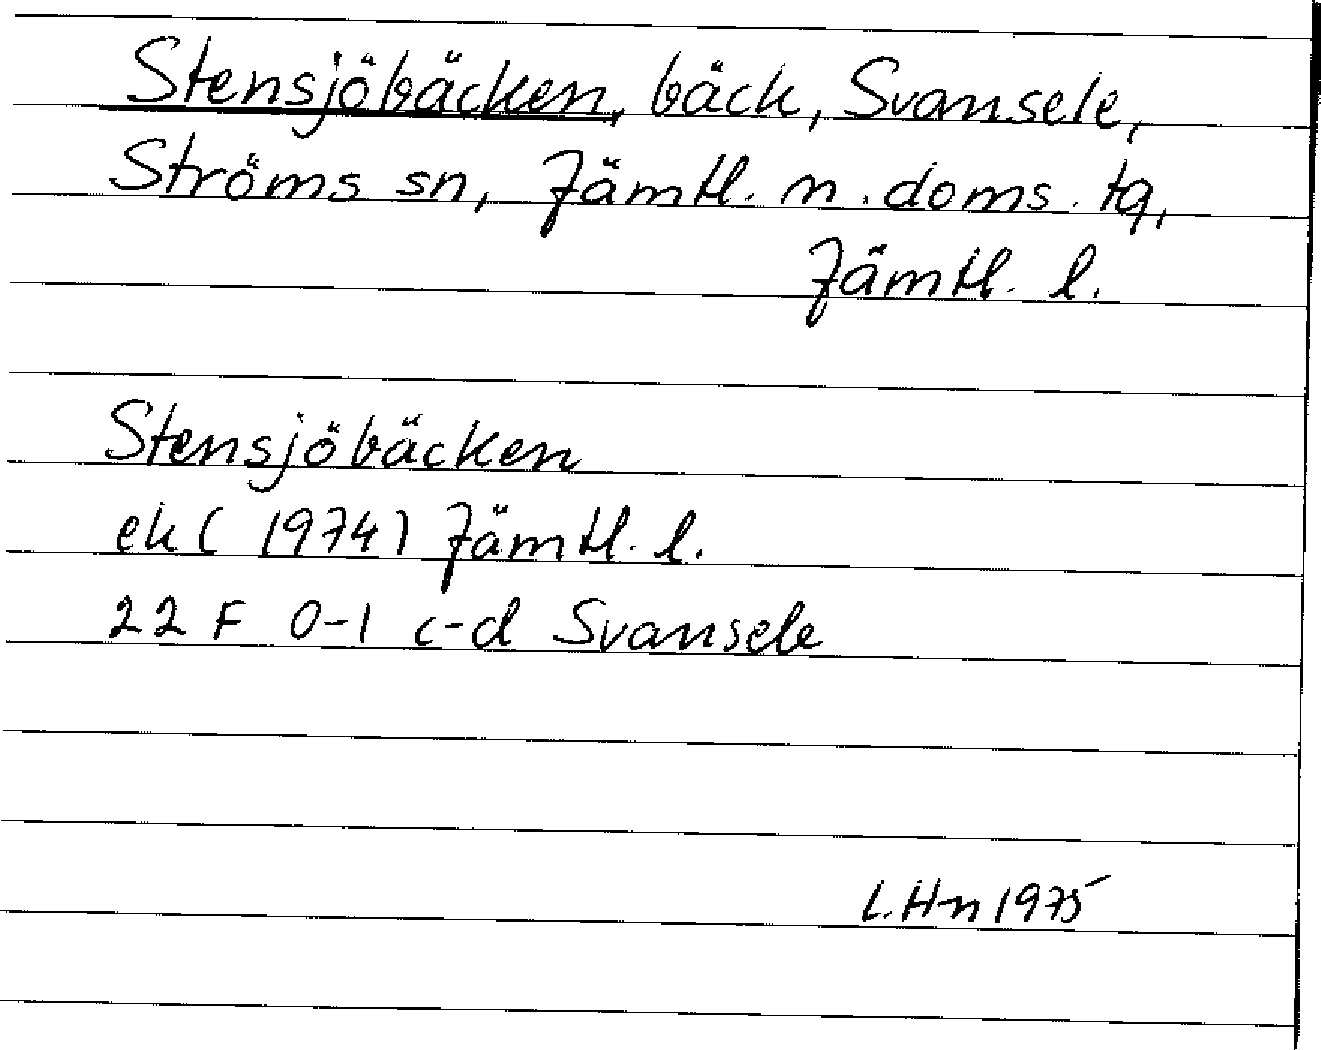 Stensjöbäcken, bäck, Svansele,
Ströms sn, Jämtl. n. doms. tg,
Jämtl. l.
Stensjöbäcken
ek (1974) Jämtl. l.
22 F 0-1 c-d Svansele
L. Hn 1975